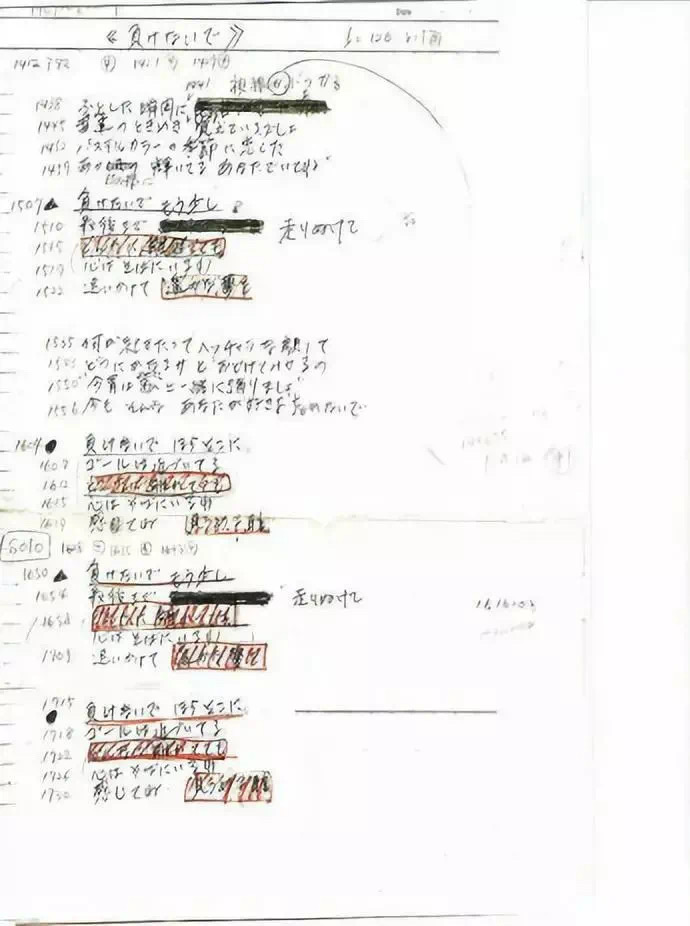 Date
《負けないで》
1438 ふとした瞬間に
視線がぶつかる
1445 幸運のときめき 覚えているでしょ
1452 パステルカラーの季節に恋した
1459 あの日の 輝いてる あなたでいてね
1507 ▲ 負けないで もう少し
1510 最後まで 走りぬけて
1515 どんなに離れてても
1519 心はそばにいるわ
1522 追いかけて 遥かな夢を
1535 何が起きたって ヘッチャラな顔して
どうにかなるサと おどけてみせるの
1550 今宵は私と一緒に踊りましょ
1556 今も そんな あなたが好きよ 忘れないで
1604 ● 負けないで ほらそこに
1607 ゴールは近づいてる
1612 どんなに離れてても
1615 心はそばにいるわ
1619 感じてね 見つめる瞳
SOLO
1650 ▲ 負けないで もう少し
1654 最後まで 走りぬけて
どんなに離れてても
心はそばにいるわ
1709 追いかけて 遥かな夢を
1715 ● 負けないで ほらそこに
1718 ゴールは近づいてる
1722 どんなに離れてても
1726 心はそばにいるわ
1730 感じてね 見つめる瞳